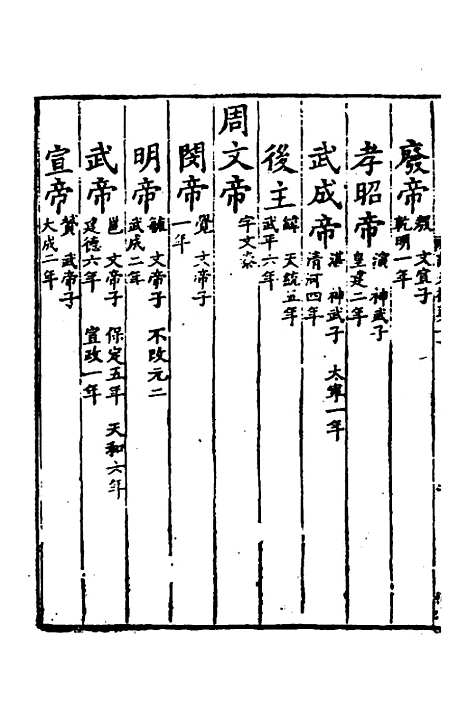 廢帝 殷 文宣子
乾明一年
孝昭帝 演 神武子
皇建二年
武成帝 湛 神武子 太寧一年
清河四年
後主 緯 天統五年
武平六年
周文帝 宇文泰
閔帝 覺 文帝子
一年
明帝 毓 文帝子 不改元二
武成二年
武帝 邕 文帝子 保定五年 天和六年
建德六年 宣政一年
宣帝 贇 武帝子
大成二年